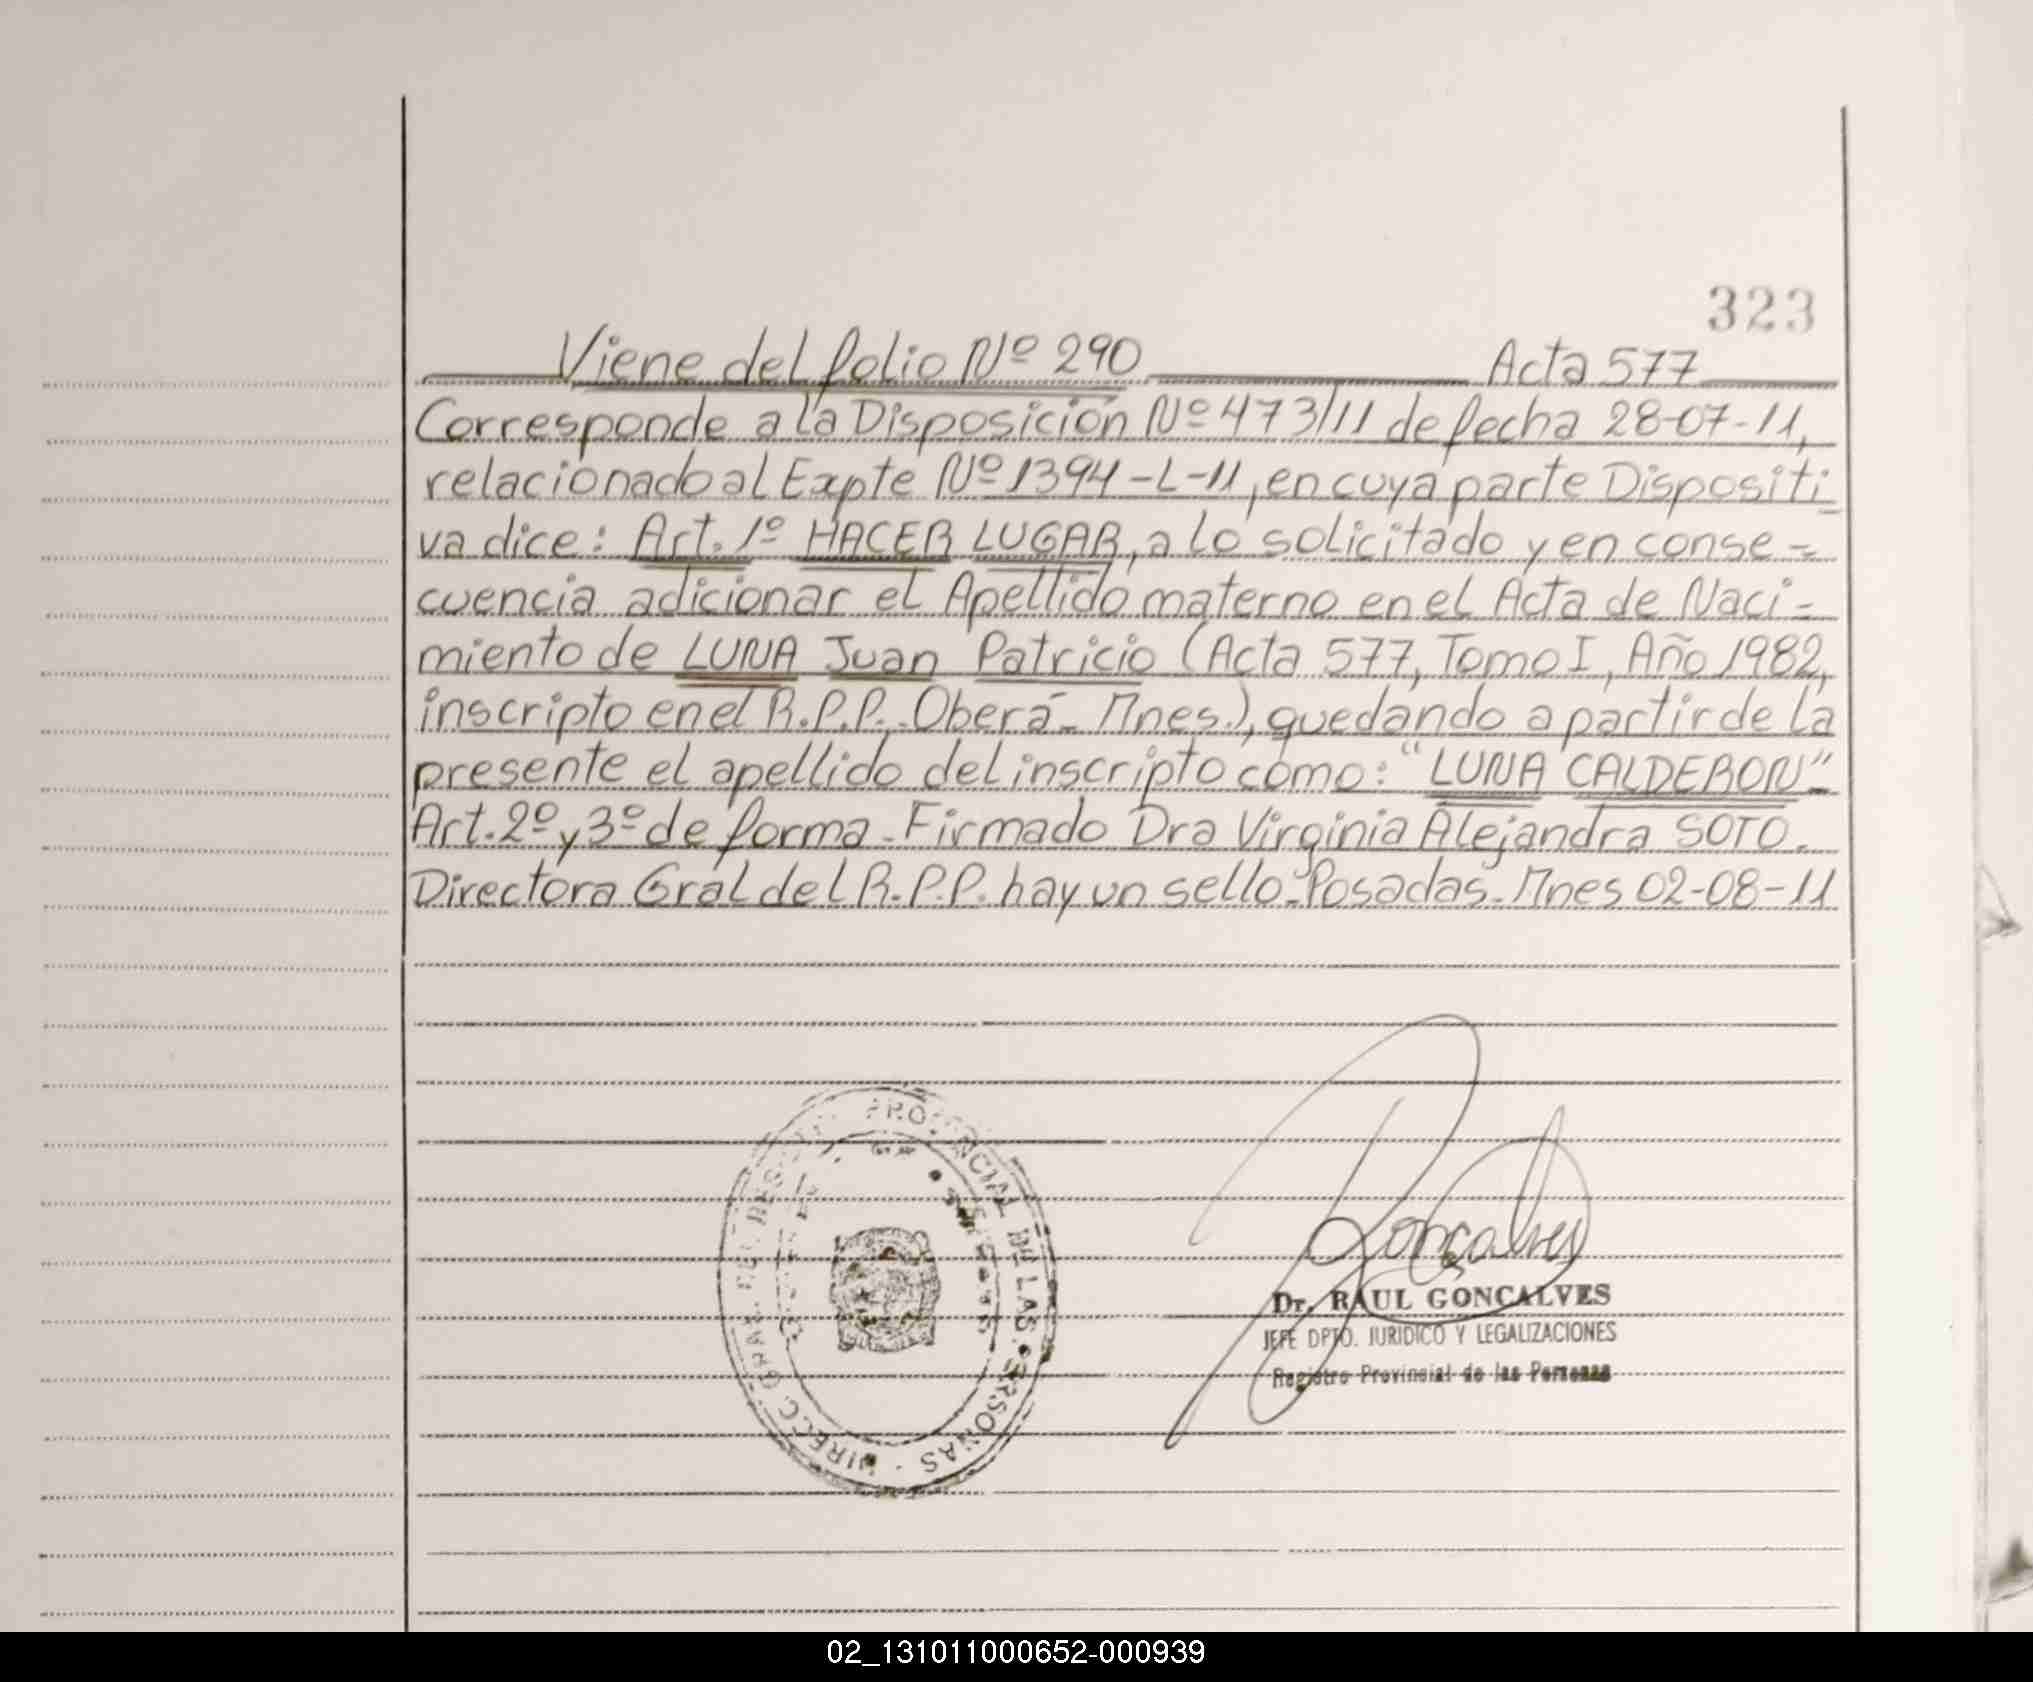 323
Viene del folio Nº 290 Acta 577
Corresponde a la Disposición Nº 473/11 de fecha 28-07-11,
relacionado al Expte Nº 1394-L-11, en cuya parte Dispositi
va dice: Art. 1º HACER LUGAR, a lo solicitado y en conse-
cuencia adicionar el Apellido materno en el Acta de Naci-
miento de LUNA Juan Patricio (Acta 577, Tomo I, Año 1982,
inscripto en el R.P.P. Oberá - Mnes.), quedando a partir de la
presente el apellido del inscripto como: "LUNA CALDERON"
Art. 2º y 3º de forma - Firmado Dra Virginia Alejandra SOTO.
Directora Gral del R.P.P. hay un sello - Posadas - Mnes 02-08-11
PROVINCIAL DE LAS PERSONAS · DIRECC. GRAL. DEL
Goncalves
Dr. RAUL GONCALVES
JEFE DPTO. JURIDICO Y LEGALIZACIONES
Registro Provincial de las Personas
02_131011000652-000939